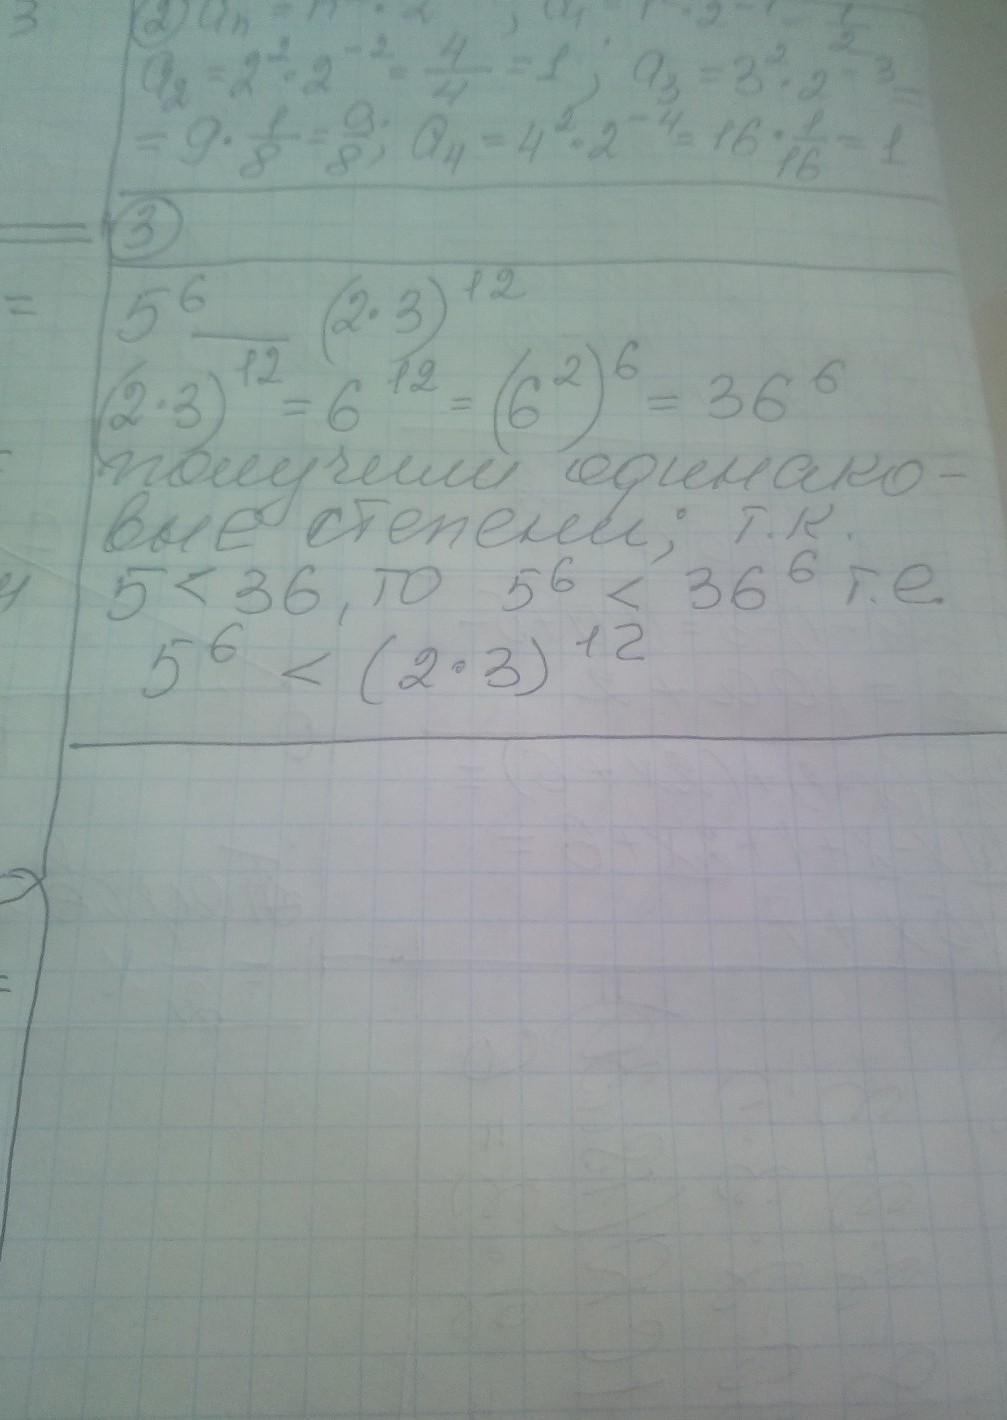 ② aₙ = n² · 2 ; a₁ = 1² · 2⁻¹ = 1/2
a₂ = 2² · 2⁻² = 4/4 = 1 ; a₃ = 3² · 2⁻³ =
= 9 · 1/8 = 9/8; a₄ = 4² · 2⁻⁴ = 16 · 1/16 = 1
③
5⁶ __ (2·3)¹²
(2·3)¹² = 6¹² = (6²)⁶ = 36⁶
получили одинако-
вые степени; т.к.
5 < 36, то 5⁶ < 36⁶ т.е.
5⁶ < (2·3)¹²